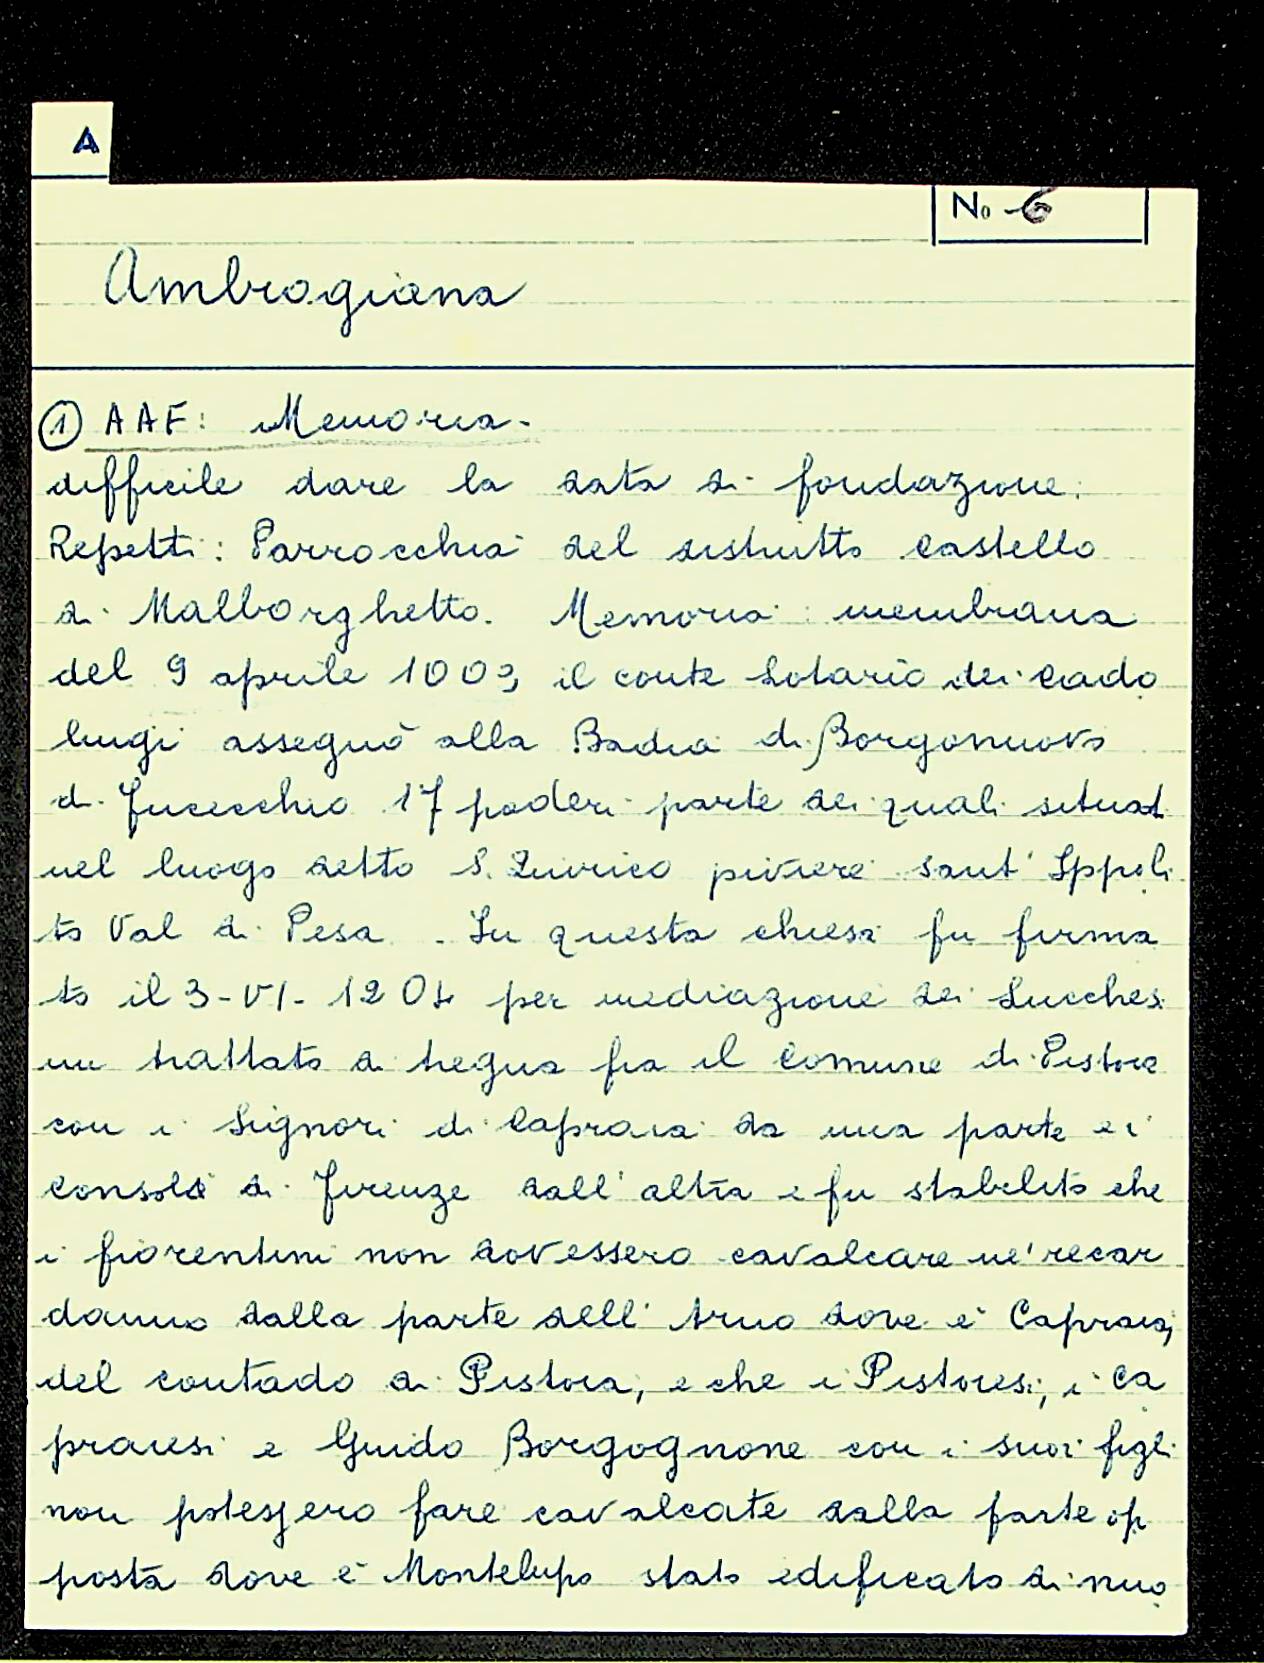 A
No 6
Ambrogiana
① AAF: Memoria.
difficile dare la data di fondazione:
Repetti: Parrocchia del distrutto castello
di Malborghetto. Memoria: membrana
del 9 aprile 1003 il conte Lotario dei Cado
lingi assegnò alla Badia di Borgonuovo
di Fucecchio 17 poderi parte dei quali situat
nel luogo detto S. Quirico piviere sant' Ippoli
to Val di Pesa. In questa chiesa fu firma
to il 3-VI-1204 per mediazione dei Lucchesi
un trattato di tregua fra il Comune di Pistoia
con i Signori di Capraia da una parte e i
Consoli di Firenze dall' altra e fu stabilito che
i fiorentini non dovessero cavalcare ne' recar
danno dalla parte dell' Arno dove è Capraia,
del contado di Pistoia, e che i Pistoiesi, i Ca
praiesi e Guido Borgognone con i suoi figli
non potessero fare cavalcate dalla parte op
posta dove è Montelupo stato edificato di nuo